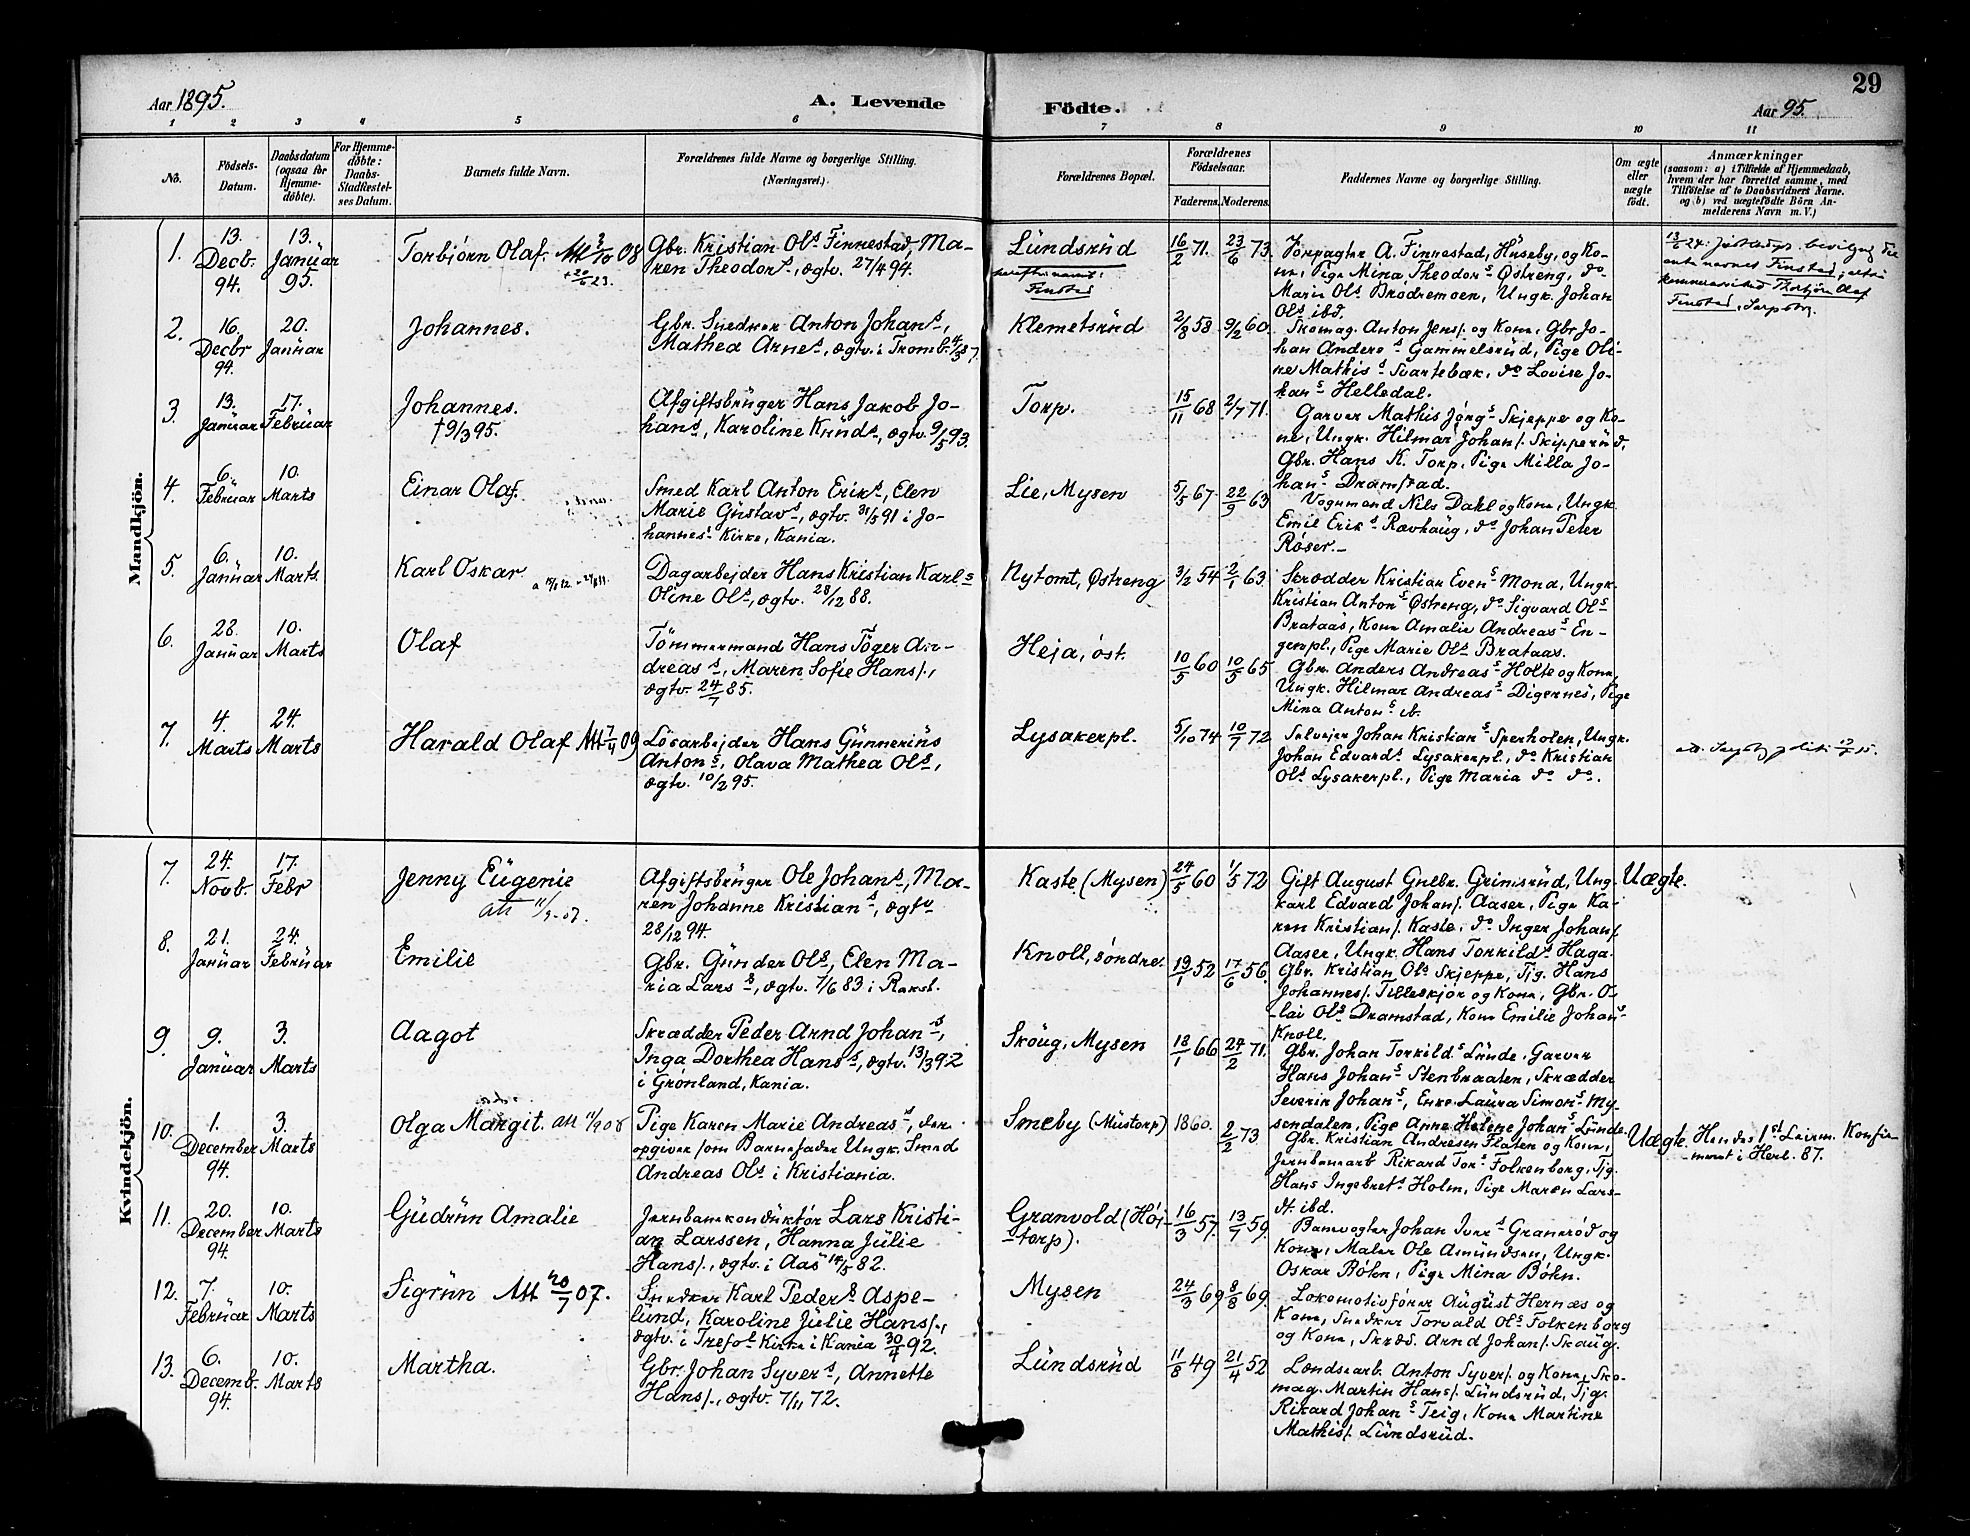 29
Aar 1895.
A. Levende
Födte.
Aar 95.
1 2 3 4 5 6 7 8 9 10 11
No.
Födsels-
Datum.
Daabsdatum
(ogsaa for
Hjemme-
døbte).
For Hjemme-
døbte:
Daabs-
Stadfestel-
ses Datum.
Barnets fulde Navn.
Forældrenes fulde Navne og borgerlige Stilling.
(Næringsvei).
Forældrenes Bopæl.
Forældrenes
Födselsaar.
Faderens. Moderens.
Faddernes Navne og borgerlige Stilling.
Om ægte
eller
uægte
født.
Anmærkninger
(saasom: a) i Tilfælde af Hjemmedaab,
hvem der har forrettet samme, med
Tilföielse af to Daabsvidners Navne.
og b) ved uægtefödte Börn An-
melderens Navn m. V.)
Mandkjön.
1.
13.
Decbr.
94.
13.
Januar
95.
Torbjörn Olaf. Att 3/10 08
+ 20/6 23.
Gbr. Kristian Ols Finnestad, Ma-
ren Theodors, ægtv. 27/4 94.
Lundsrud
Finstad
16/2 71. 23/6 73.
Forpagter A. Finnestad, Huseby, og Ko-
ne, Pige Mina Theodors Østreng, do
Marie Ols Brödremoen, Ungk. Johan
Ols ibd.
13/2 24.
Finstad
Thorbjörn Olaf
Finstad, Sarpsborg.
2.
16.
Decbr
94.
20.
Januar
Johannes.
Gbr. Snedker Anton Johans,
Mathea Arnes, ægtv. i Tromb. 4/3 87.
Klemetsrud
2/8 58 9/2 60.
Skomag. Anton Jens/. og Kone, Gbr Jo-
han Anders Gammelsrud, Pige Oli-
ne Mathis Svartebæk, do Lovise Jo-
hans Helledal.
3.
13.
Januar
17.
Februar
Johannes.
† 9/3 95.
Afgiftsbruger Hans Jakob Jo-
hans, Karoline Knuds, ægtv. 9/5 93.
Torp.
15/11 68 2/7 71.
Garver Mathis Jörgs Skjeppe og Ko-
ne, Ungk. Hilmar Johan/. Skipperud,
Gbr. Hans K. Torp, Pige Milla Jo-
hans Dramstad.
4.
6.
Februar
10.
Marts
Einar Olaf.
Smed Karl Anton Eriks, Elen
Marie Gustavs, ægtv. 31/5 91 i Jo-
hannes Kirke, Kania.
Lie, Mysen
5/5 67. 22/9 63
Vognmand Nils Dahl og Kone, Ungk.
Emil Eriks Ravhaug, do Johan Peter
Röser.
5.
6.
Januar
10.
Marts.
Karl Oskar
Dagarbejder Hans Kristian Karls
Oline Ols, ægtv. 28/12 88.
Nytomt, Østreng
3/2 54 2/1 63.
Skrædder Kristian Evens Mona, Ungk.
Kristian Antons Østreng, do Sigvard Ols
Brataas, Kone Amalie Andreas En-
gerpl., Pige Marie Ols Brataas.
6.
28.
Januar
10.
Marts
Olaf
Tömmermand Hans Töger An-
dreas, Maren Sofie Hans/.,
ægtv. 24/7 85.
Heja, öst.
10/5 60 10/5 65
Gbr. Anders Andreas Holte og Kone,
Ungk. Hilmar Andreas Digernes, Pige
Mina Antons ib.
7.
4.
Marts
24.
Marts
Harald Olaf Att 7/4 09
Lösarbejder Hans Gunnerius
Antons, Olava Mathea Ols,
ægtv. 10/2 95.
Lysakerpl.
5/10 74 10/7 72
Selvejer Johan Kristians Sperholen, Ungk.
Johan Edvards Lysakerpl., do Kristian
Ols Lysakerpl., Pige Maria do do.
Kvindekjön.
7.
24.
Novb.
17.
Febr
Jenny Eugenie
Att 11/9-07.
Afgiftsbruger Ole Johans, Ma-
ren Johanne Kristians, ægtv
28/12 94.
Kaste (Mysen)
24/5 60 1/5 72
Gift August Gulbr. Grimsrud, Ung-
karl Edvard Johan/. Aaser, Pige Ka-
ren Kristian/. Kaste, do Inger Johan/.
Aaser, Ungk. Hans Torkilds Haga.
Uægte.
8.
21.
Januar
24.
Februar
Emilie
Gbr. Gunder Ols, Elen Ma-
ria Lars, ægtv. 7/6 83 i Rakst.
Knoll, söndre.
19/1 52 17/6 56.
Gbr. Kristian Ols Skjeppe, Tjg. Hans
Johannes/. Tilleskjör og Kone, Gbr. O-
lai Ols Dramstad, Kone Emilie Johans
Knoll.
9.
9.
Januar
3.
Marts
Aagot
Skrædder Peder Arnd Johans,
Inga Dorthea Hans, ægtv. 13/3 92
i Grönland, Kania.
Skoug, Mysen
18/1 66 24/2 71.
Gbr. Johan Torkilds Lunde, Garver
Hans Johans Stenbraaten, Skrædder
Severin Johans, Enke Laura Simons My-
sendalen, Pige Anne Helene Johans Lunde.
10.
1.
December
94.
3.
Marts
Olga Margit. Att 11/9 08
Pige Karen Marie Andreas, der
opgiver som Barnefader Ungk. Smed
Andreas Ols i Kristiania.
Smeby (Mustorp)
1860. 2/2 73
Gbr. Kristian Andresen Flaten og Kone,
Jernbanearb Rikard Tors Folkenborg, Tjg.
Hans Ingebrets Holm, Pige Maren Lars-
dt. ibd.
Uægte.
Hendes 1st Leierm. Konfir-
meret i Herl. 87.
11.
20.
December
94.
10.
Marts
Gudrun Amalie
Jernbanekonduktör Lars Kristi-
an Larssen, Hanna Julie
Hans/., ægtv. i Aas 14/5 82.
Granvold (Höi-
torp).
16/3 57. 13/7 59.
Banevogter Johan Ivers Graneröd og
Kone, Maler Ole Amundsen, Ungk.
Oskar Böhn, Pige Mina Böhn.
12.
7.
Februar
10.
Marts
Sigrun Att 20/7 07.
Snedker Karl Peders Aspe-
lund, Karoline Julie Hans/.,
ægtv. i Trefos Kirke i Kania 30/4 92.
Mysen
24/3 69 8/8 69.
Lokomotivförer August Hernæs og
Kone, Snedker Torvald Ols Folkenborg
og Kone, Skræd. Arnd Johan/. Skaug.
13.
6.
Decemb.
94.
10.
Marts
Martha.
Gbr. Johan Syvers, Annette
Hans/., ægtv. 7/11 72.
Lundsrud
11/8 49 21/4 52
Landearb. Anton Syver/. og Kone, Sko-
mag. Martin Hans/. Lundsrud, Tjg.
Rikard Johans Teig, Kone Martine
Mathis/. Lundsrud.